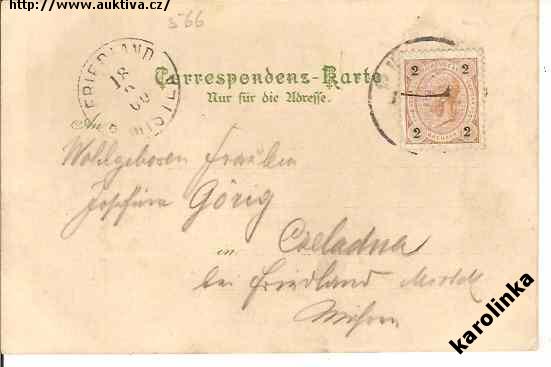 http://www.auktiva.cz/
566
FRIEDLAND
18
00
MISTEK
Correspondenz-Karte
Nur für die Adresse.
An
2 2
2 2
Wohlgeboren Fräulein
Josefine Görig
in Czeladna
bei Friedland
Mähren
karolinka